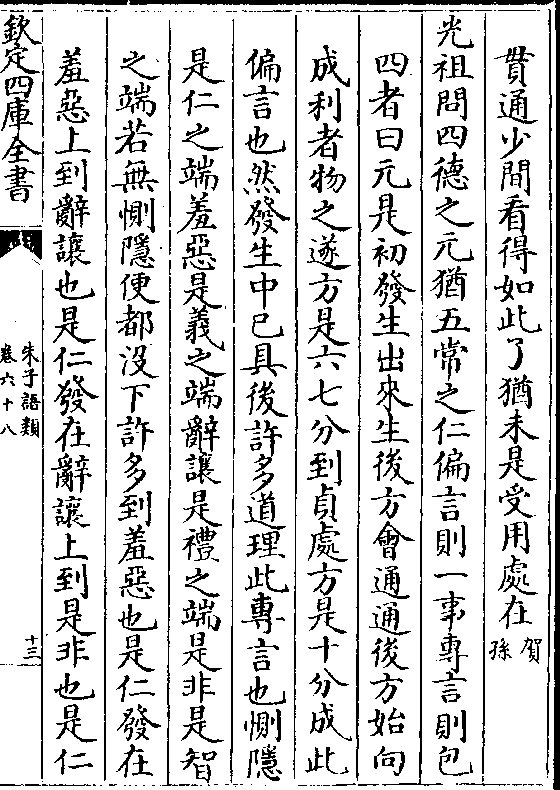 貫通少間看得如此了猶未是受用處在賀孫
光祖問四德之元猶五常之仁偏言則一事專言則包
四者曰元是初發生出來生後方會通通後方始向
成利者物之遂方是六七分到貞處方是十分成此
偏言也然發生中已具後許多道理此專言也惻隱
是仁之端羞惡是義之端辭讓是禮之端是非是智
之端若無惻隱便都没下許多到羞惡也是仁發在
羞惡上到辭讓也是仁發在辭讓上到是非也是仁
欽定四庫全書
朱子語類
卷六十八
十三